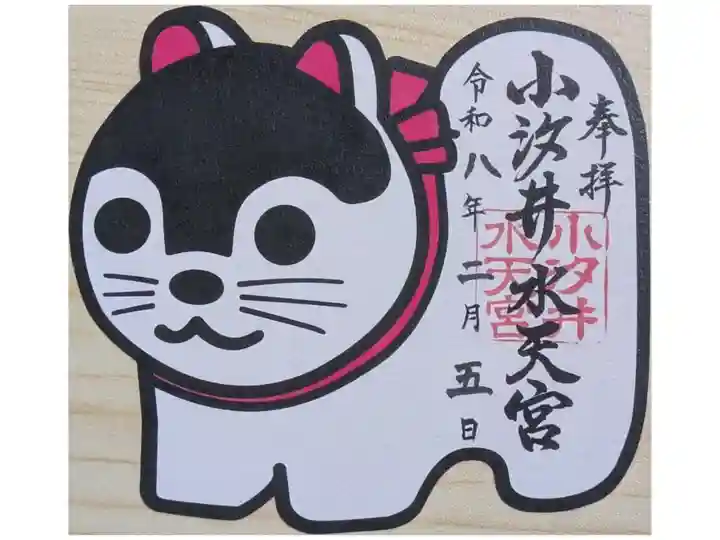 奉拝
小汐井水天宮
小汐井
水天宮
令和八年二月五日